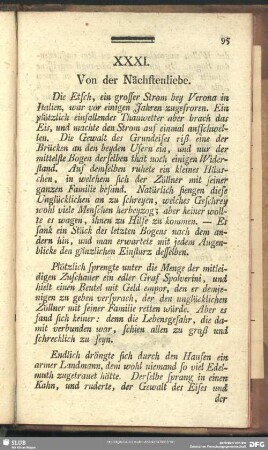 95
XXXI.
Von der Nächstenliebe.
Die Etsch, ein grosser Strom bey Verona in
Italien, war vor einigen Jahren zugefroren. Ein
plötzlich einfallender Thauwetter aber brach das
Eis, und machte den Strom auf einmal anschwel-
len. Die Gewalt des Grundeises riß eine der
Brücken an den beyden Ufern ein, und nur der
mittelste Bogen derselben that noch einigen Wider-
stand. Auf demselben ruhete ein kleines Häus-
chen, in welchem sich der Zöllner mit seiner
ganzen Familie befand. Natürlich fiengen diese
Unglücklichen an zu schreyen, welches Geschrey
wohl viele Menschen herbeyzog; aber keiner woll-
te es wagen, ihnen zu Hilfe zu kommen. — Es
sank ein Stück des letzten Bogens nach dem an-
dern hin, und man erwartete mit jedem Augen-
blicke den gänzlichen Einsturz desselben.
Plötzlich sprengte unter die Menge der mitlei-
digen Zuschauer ein edler Graf Spolverini, und
hielt einen Beutel mit Geld empor, den er demje-
nigen zu geben versprach, der den unglücklichen
Zöllner mit seiner Familie retten würde. Aber es
fand sich keiner: denn die Lebensgefahr, die da-
mit verbunden war, schien allen zu groß und
schrecklich zu seyn.
Endlich drängte sich durch den Haufen ein
armer Landmann, dem wohl niemand so viel Edel-
muth zugetrauet hätte. Derselbe sprang in einen
Kahn, und ruderte, der Gewalt des Eises und
der
SLUB
DFG